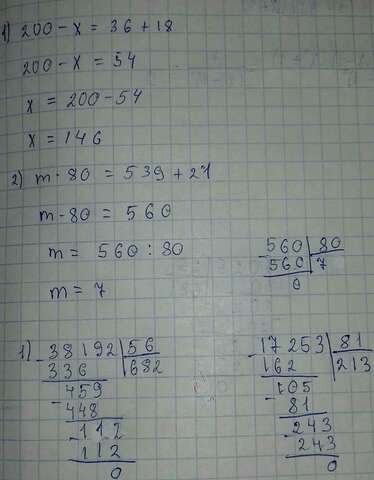 1) 200 - x = 36 + 18
200 - x = 54
x = 200 - 54
x = 146
2) m · 80 = 539 + 21
m · 80 = 560
m = 560 : 80
m = 7
- 560 | 80
560 | 7
0
1) - 38192 | 56
336 | 682
- 459
448
- 112
112
0
- 17253 | 81
162 | 213
- 105
81
- 243
243
0